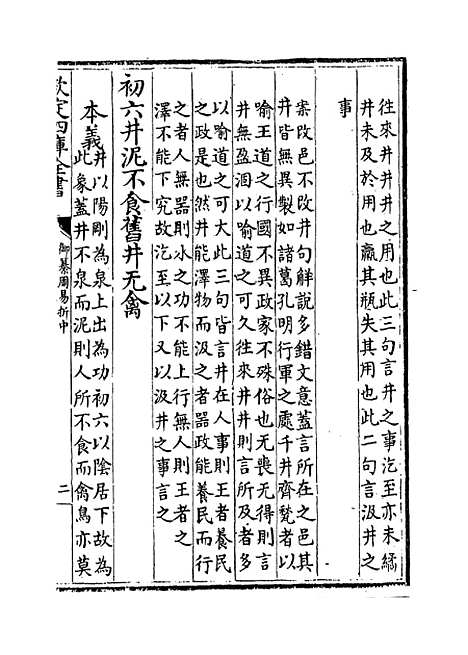 往來井井井之用也此三句言井之事汔至亦未繘
井未及於用也羸其瓶失其用也此二句言汲井之
事
案改邑不改井句解說多錯文意蓋言所在之邑其
井皆無異製如諸葛孔明行軍之處千井齊甃者以
喻王道之行國不異政家不殊俗也无喪无得則言
井無盈涸以喻道之可久往來井井則言所及者多
以喻道之可大此三句皆言井在人事則王者養民
之政是也然井能澤物而汲之者器政能養民而行
之者人無器則水之功不能上行無人則王者之
澤不能下究故汔至以下又以汲井之事言之
初六井泥不食舊井无禽
本義井以陽剛為泉上出為功初六以陰居下故為
此象蓋井不泉而泥則人所不食而禽鳥亦莫
欽定四庫全書
御纂周易折中
二